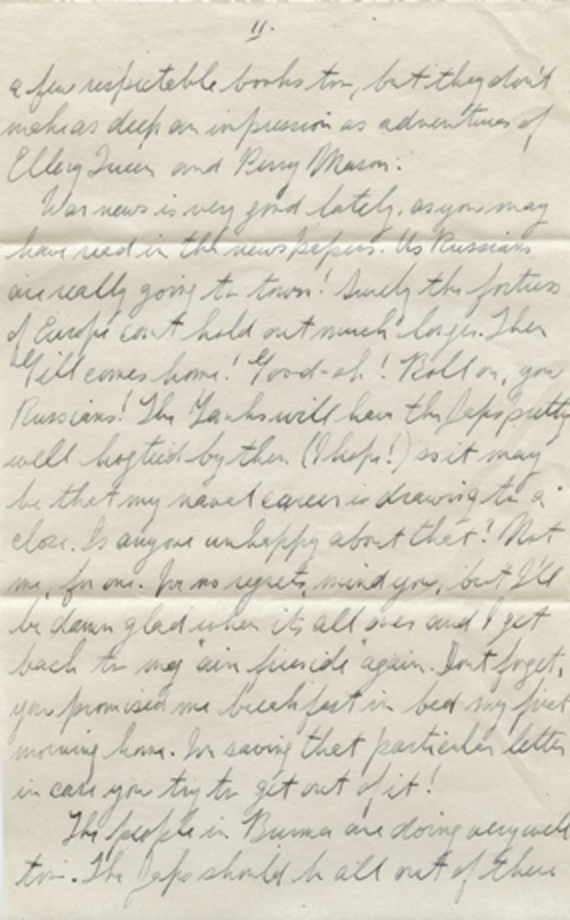 11.
a few respectable books too, but they don't
make as deep an impression as adventures of
Ellery Queen and Perry Mason.
War news is very good lately, as you may
have read in the newspapers. Us Russians
are really going to town! Surely the fortress
of Europe can't hold out much longer. Then
comes home! Good-oh! Roll on, you
Russians! The Yanks will have the Japs pretty
well hogtied by then (I hope!) so it may
be that my naval career is drawing to a
close. Is anyone unhappy about that? Not
me, for one. I've no regrets, mind you, but I'll
be damn glad when it's all over and I get
back to my "ain fireside" again. Don't forget,
you promised me breakfast in bed my first
morning home. I'm saving that particular letter
in case you try to get out of it!
The people in Burma are doing very well
too. The Japs should be all out of there